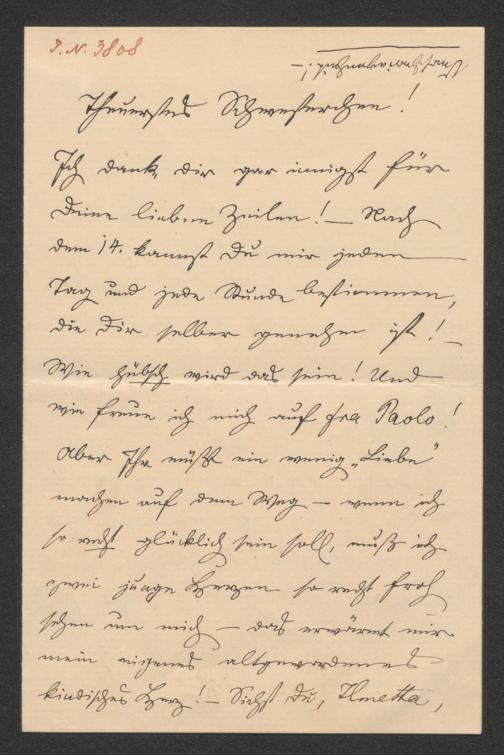 J. N. 3808
Theuerstes Schwesterchen!
Ich dank, dir gar innigst für
Deine lieben Zeilen! — Nach
dem 14. kannst Du mir jeden
Tag und jede Stunde bestimmen,
die Dir selber genehm ist! —
Wie hübsch wird das sein! Und
wie freue ich mich auf fra Paolo!
Aber Ihr müßt ein wenig „Liebe“
machen auf dem Weg — wenn ich
so recht glücklich sein soll, muß ich
zwei junge Herzen so recht froh
sehen um mich — das erwärmt mir
mein eigenes altgewordenes
kindisches Herz! — Siehst Du, Ilmetta,